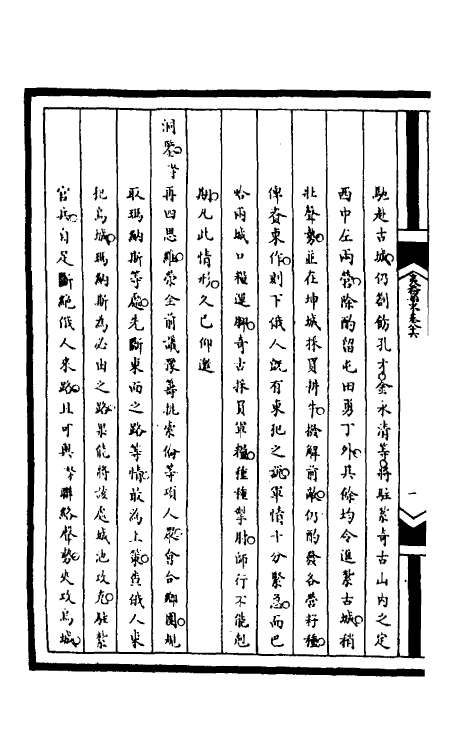 馳赴古城仍劄飭孔才金永清等將駐紮奇古山內之定
西中左兩營除酌留屯田勇丁外其餘均令進紮古城稍
壯聲勢並在坤城採買耕牛撥解前敵仍酌發各營籽種
俾資東作刻下俄人既有東犯之說軍情十分緊急而巴
哈兩城口糧運腳奇古採買軍糧種種掣肘師行不能剋
期凡此情形久已仰邀
洞鑒等再四思維榮全前議豫籌挑索倫等項人眾會合鄉團規
取瑪納斯等處先斷東西之路等情最為上策查俄人來
犯烏城瑪納斯為必由之路果能將該處城池攻克駐紮
官兵自足斷絕俄人來路且可與等聯絡聲勢夾攻烏城
一